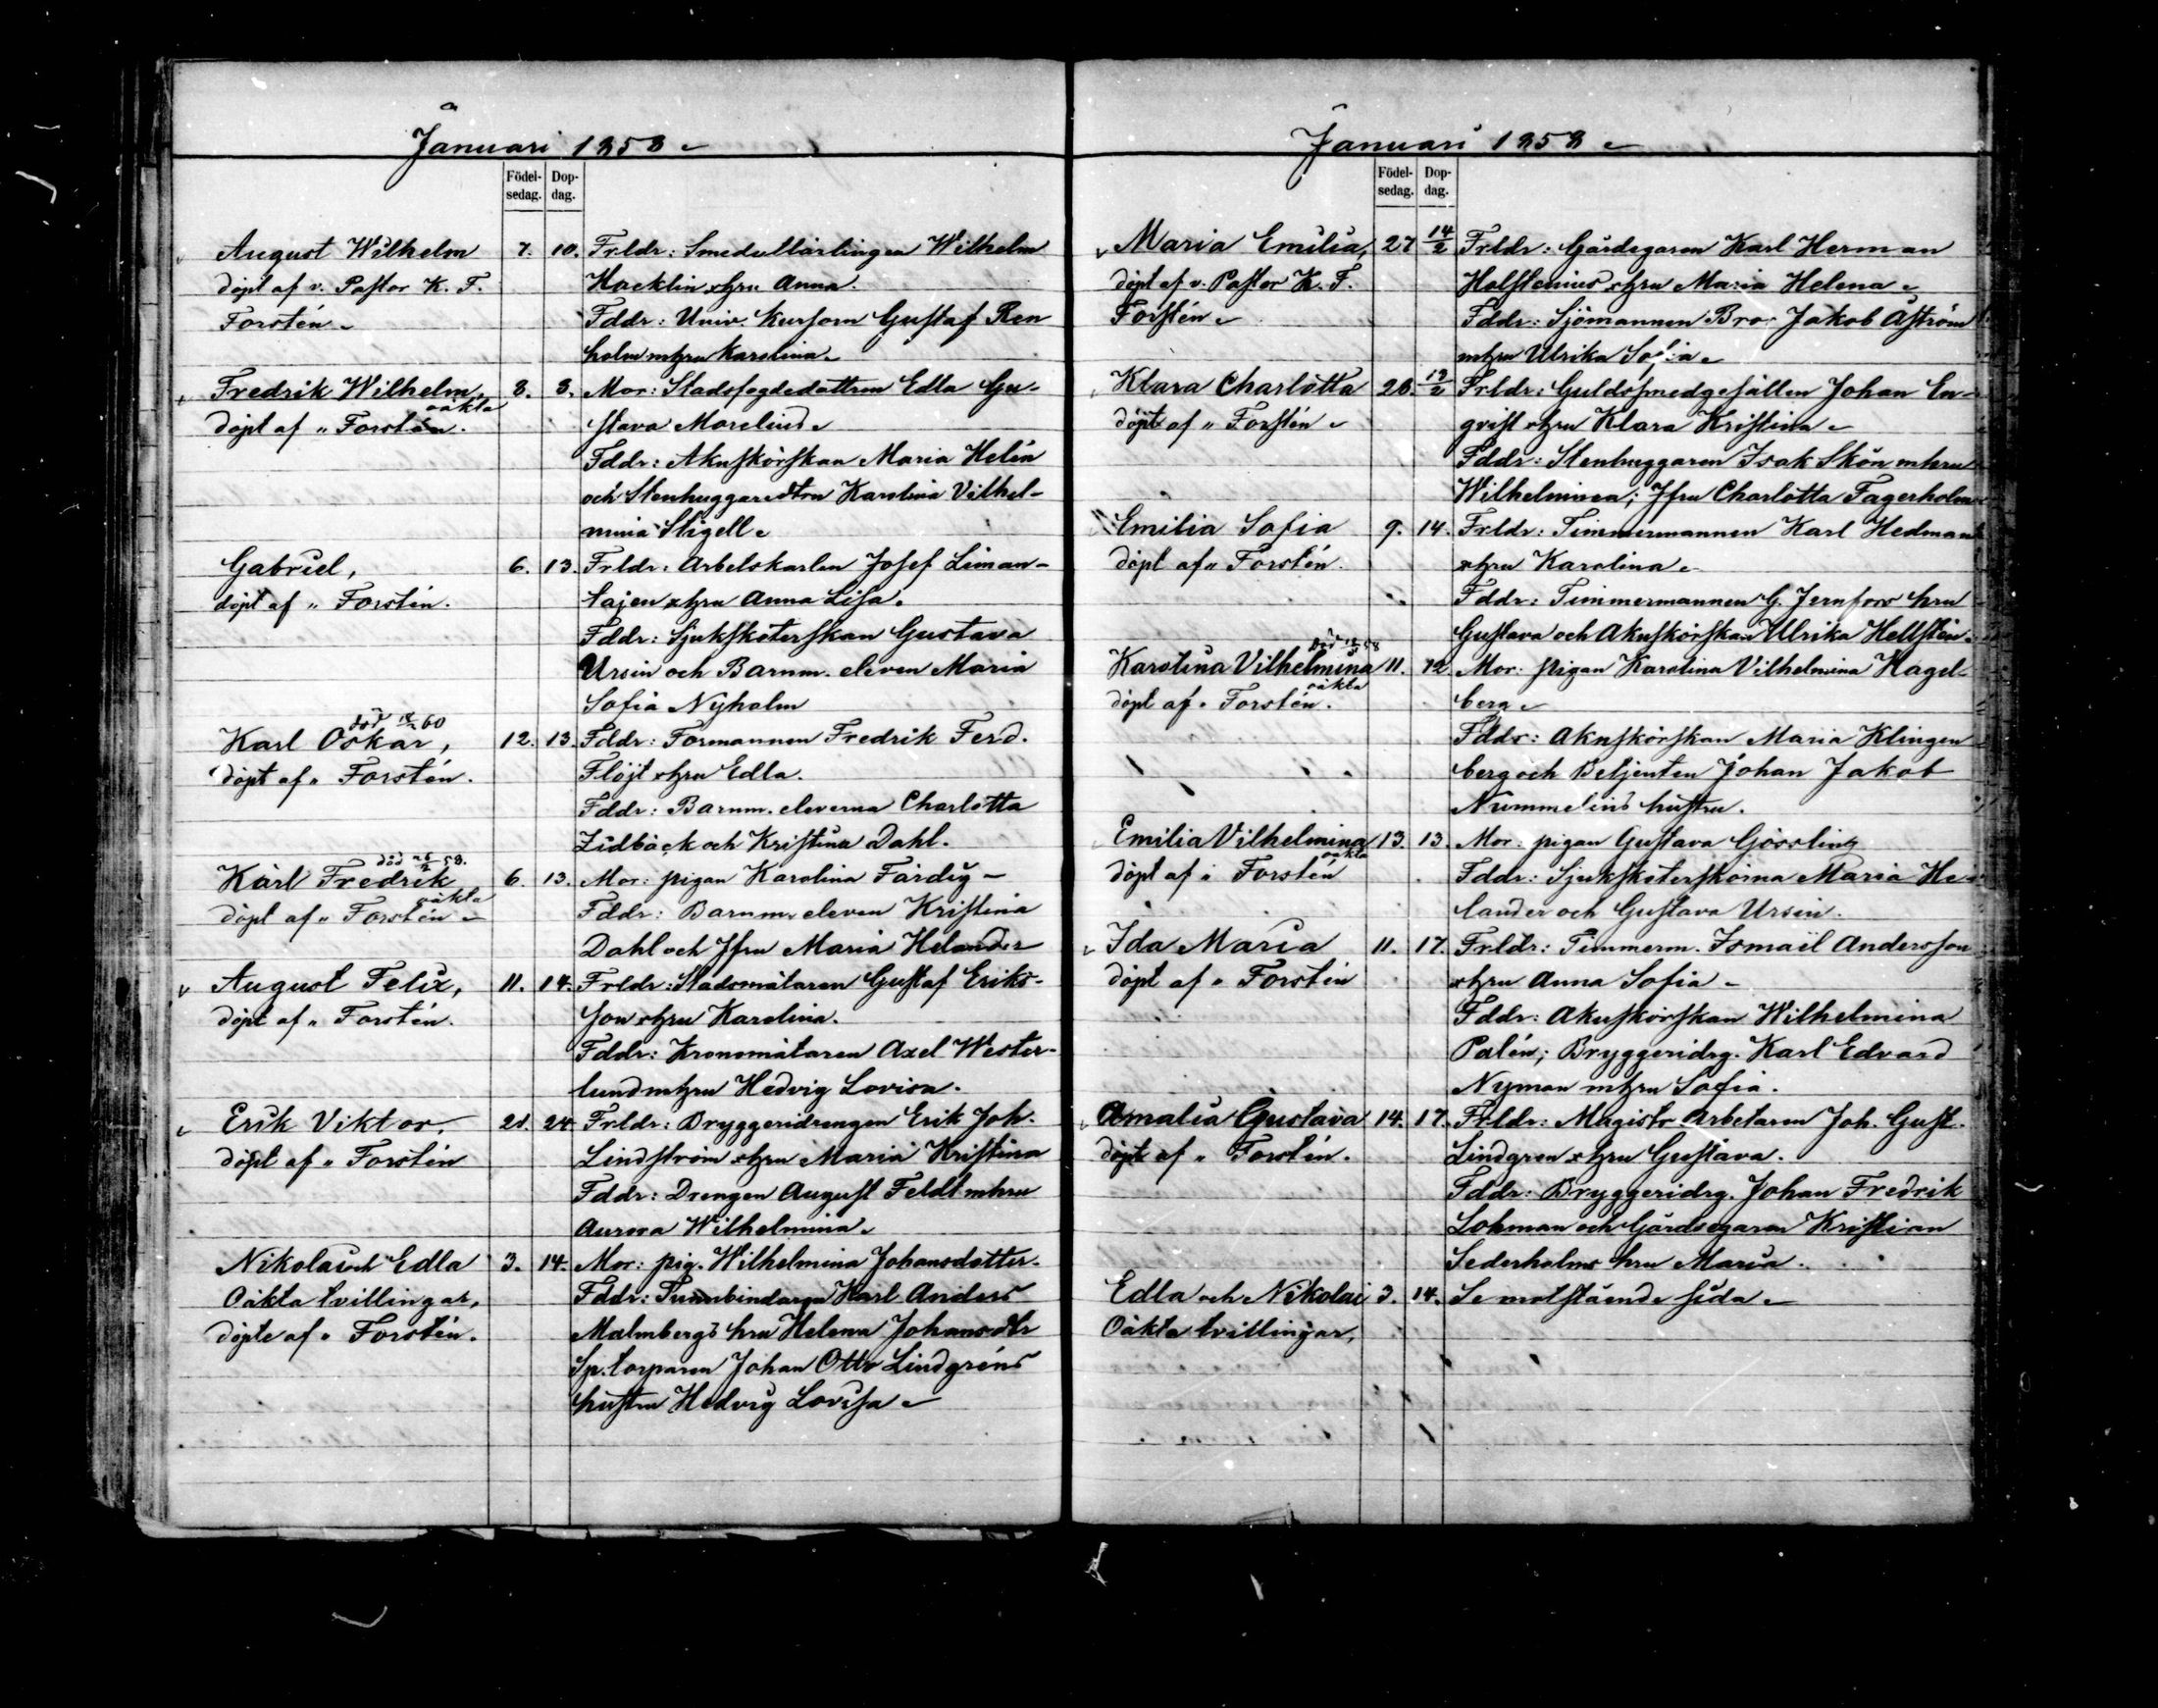 Januari 1858
Födel-
sedag.
Dop-
dag.
August Wilhelm 7. 10. Frldr: Smedslärlingen Wilhelm
döpt af v. Pastor K. F. Hacklin o hru Anna.
Forstén Fddr: Univ. Kursorn Gustaf Ren
holm m hru Karolina
Fredrik Wilhelm, 8. 8. Mor: Stadsfogdedottren Edla Gu-
oäkta
döpt af " Forstén. stava Morelius
Fddr: Akuskörskan Maria Helén
och Stenhuggaredtrn Karolina Vilhel-
mina Stigell
Gabriel, 6. 13. Frldr: Arbetskarlen Josef Liman-
döpt af " Forstén. tajen o hru Anna Lisa.
Fddr: Sjuksköterskan Gustava
Ursin och Barnm. eleven Maria
Sofia Nyholm
död 60
Karl Oskar, 12. 13. Fddr: Formannen Fredrik Ferd.
döpt af " Forstén. Flöjt o hru Edla.
Fddr: Barnm. eleverna Charlotta
Lidbäck och Kristina Dahl.
död 58.
Karl Fredrik 6. 13. Mor: pigan Karolina Färdig
oäkta
döpt af " Forstén Fddr: Barnm. eleven Kristina
Dahl och Jfru Maria Helander
August Felix, 11. 14. Frldr: Stadsmätaren Gustaf Eriks-
döpt af " Forstén. son o hru Karolina.
Fddr: Kronomätaren Axel Wester-
lund m hru Hedvig Lovisa.
Erik Viktor, 21. 24 Frldr: Bryggeridrengen Erik Joh.
döpt af " Forstén Lindström o hru Maria Kristina
Fddr: Drengen August Feldt m hru
Aurora Wilhelmina
Nikolai och Edla 3. 14. Mor: pig. Wilhelmina Johansdotter.
Oäkta tvillingar, Fddr: Tunnbindaren Karl Anders
döpte af " Forstén. Malmbergs hru Helena Johansdtr
Sp. torparen Johan Otto Lindgréns
hustru Hedvig Lovisa
Januari 1858
Födel-
sedag.
Dop-
dag.
Maria Emilia, 27 14/2 Frldr: Gårdegaren Karl Herman
döpt af v. Pastor K. F. Holstenius o hru Maria Helena
Forstén Fddr: Sjömannen Bror Jakob Åström
m hru Ulrika Sofia
Klara Charlotta 26. 12/2 Frldr: Guldsmedgesällen Johan En-
döpt af " Forstén qvist o hru Klara Kristina
Fddr: Stenhuggaren Isak Skön m hru
Wilhelmina; Jfru Charlotta Fagerholm
Emilia Sofia 9. 14. Frldr: Timmermannen Karl Hedman
döpt af " Forstén. o hru Karolina
Fddr: Timmermannen G. Jernfors hru
Gustava och Akuskörskan Ulrika Hellstén
död 58
Karolina Vilhelmina 11. 12. Mor: pigan Karolina Vilhelmina Hagel-
oäkta
döpt af " Forstén. berg
Fddr: Akuskörskan Maria Klingen
berg och Betjenten Johan Jakob
Nummelins hustru.
Emilia Vilhelmina 13. 13. Mor: pigan Gustava Gjösling
oäkta
döpt af " Forstén Fddr: Sjuksköterskorna Maria He-
lander och Gustava Ursin.
Ida Maria 11. 17. Frldr: Timmerm. Ismaël Andersson
döpt af " Forstén o hru Anna Sofia
Fddr: Akuskörskan Wilhelmina
Palén; Bryggeridrg. Karl Edvard
Nyman m hru Sofia.
Amalia Gustava 14. 17. Frldr: Magistr Arbetaren Joh. Gust.
döpt af " Forstén. Lindgren o hru Gustava.
Fddr: Bryggeridrg. Johan Fredrik
Lohman och Gårdsegaren Kristian
Sederholms hru Maria.
Edla och Nikolai 3. 14. Se motstående sida
Oäkta tvillingar,